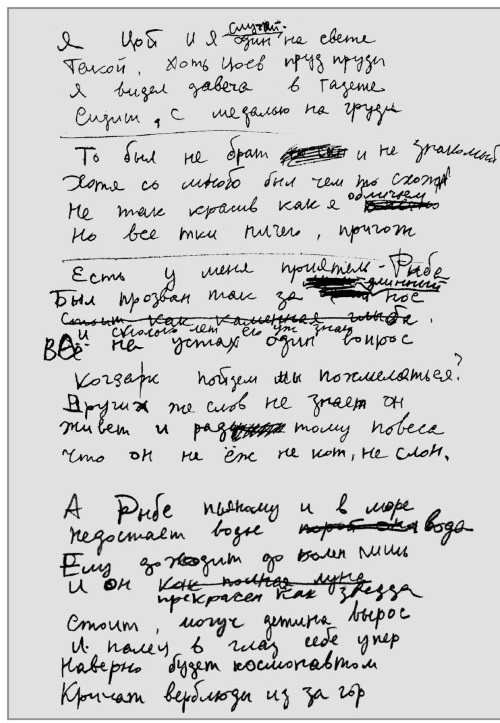 случай-
Я Цой и я один на свете
Такой, хоть Цоев пруд пруди
Я видел давеча в газете
Сидит, с медалью на груди
То был не брат и не знакомый
Хотя со мною был чем то схож
Не так красив как я обличьем
Но все тки ничего, пригож
Есть у меня приятель - Рыба
Был прозван так за длинный нос
Стоит как каменная глыба.
И сколько лет его уж знаю
Всё на устах один вопрос
Когда ж пойдем мы похмеляться?
Других же слов не знает он
Живет и рад тому повеса
Что он не ёж не кот, не слон.
А Рыбе пьяному и в море
Недостает воды вода
Ему доходит до колен лишь
И он как полная луна
прекрасен как звезда
Стоит, могуч детина вырос
И палец в глаз себе упер
Наверно будет космонавтом
Кричат верблюды из за гор